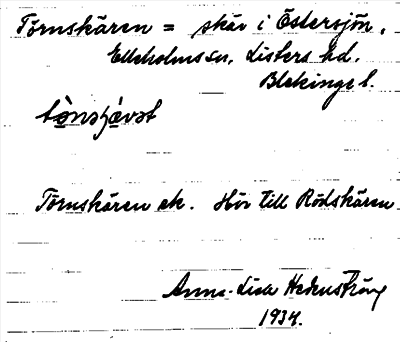 Törnskären = skär i Östersjön,
Elleholms sn. Listers hd.
Blekinge l.
Törnskären ek. Hör till Rödskären
Anna-Lisa Hedenström
1934.